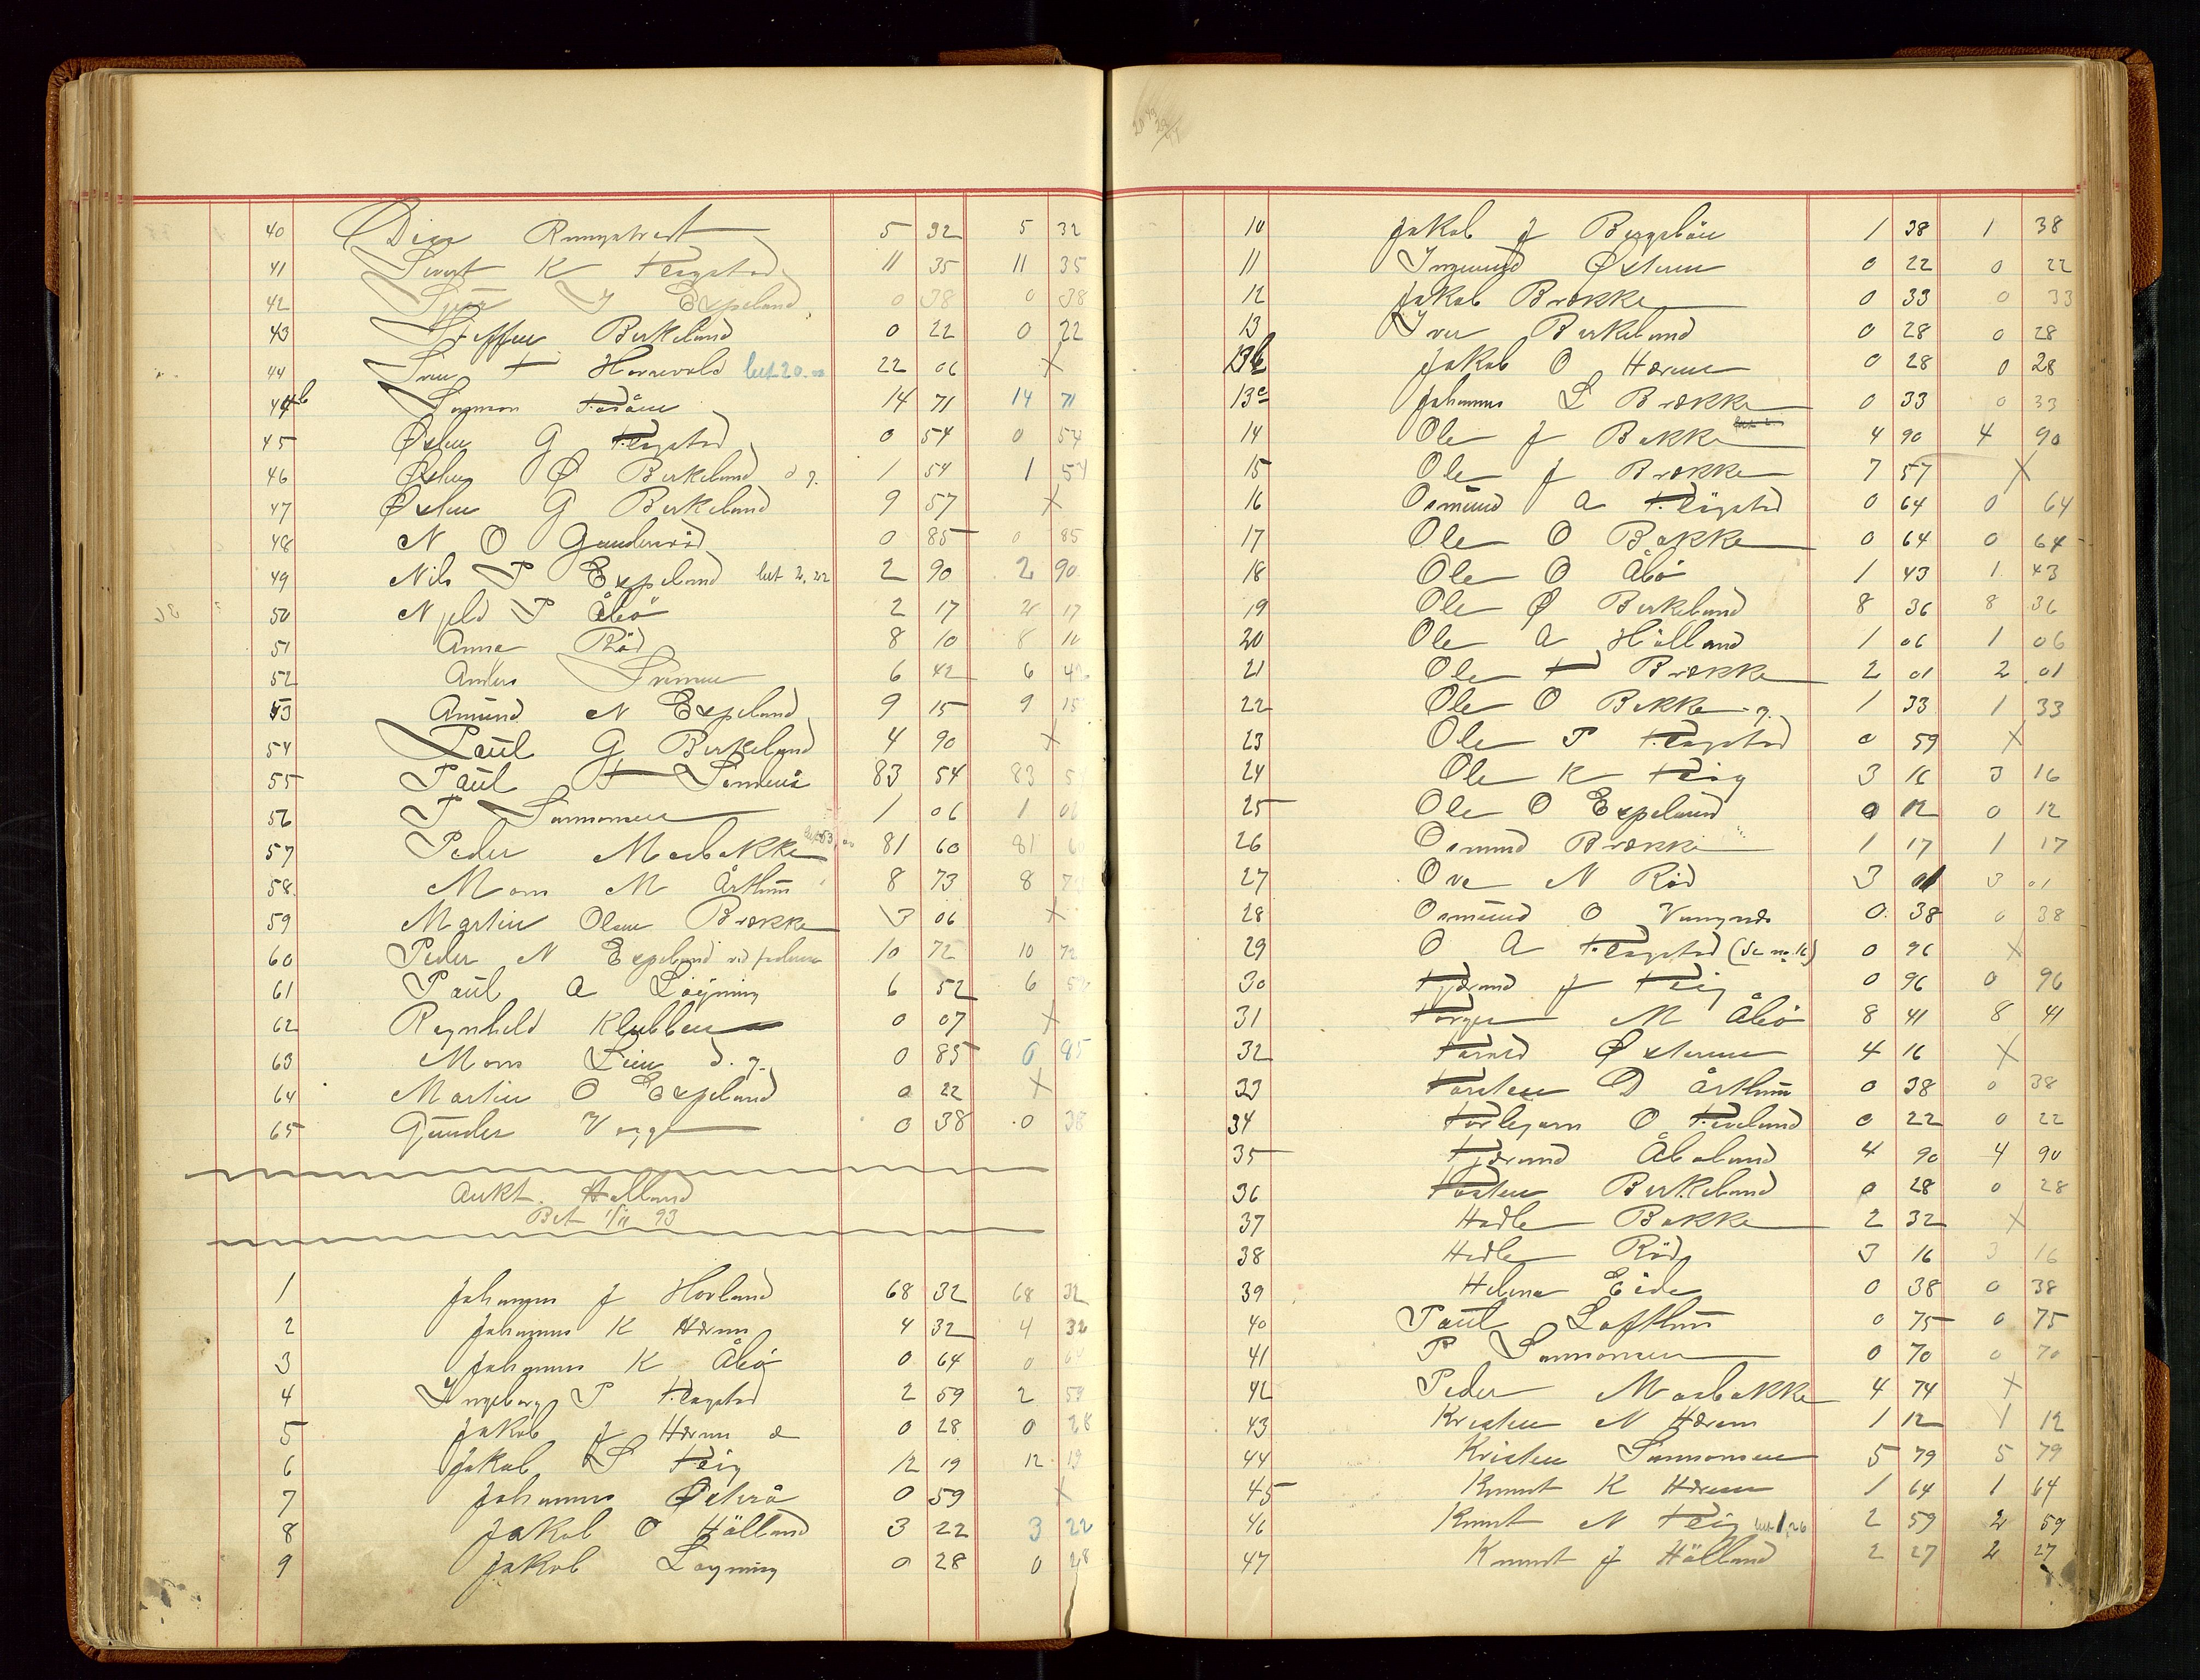 40 5 32 5 32
41 Sivert K 11 35 11 35
42 J Espeland 0 38 0 38
43 Steffen Birkeland 0 22 0 22
44 22 06 X
44b Salmon 14 71 14 71
45 Østen G 0 54 0 54
46 Østen Ø Birkeland d. y. 1 54 1 54
47 Østen G Birkeland 9 57 X
48 N O 0 85 0 85
49 Nils P Espeland 2 90 2 90
50 P Åbø 2 17 2 17
51 Anna Rød 8 10 8 10
52 Anders 6 42 6 42
53 Amund N Espeland 9 15 9 15
54 Paul G Birkeland 4 90 X
55 Paul T 83 54 83 54
56 P 1 06 1 06
57 Peder Mosbakke 81 60 81 60
58 Mons M Århus 8 73 8 73
59 Martin Olsen Brække 3 06 X
60 Peder N Espeland ved faderen 10 72 10 72
61 Paul A Løyning 6 52 6 52
62 Ragnhild Klubben 0 07 X
63 Mons Lien d. y. 0 85 0 85
64 Martin O Espeland 0 22 X
65 Gunder Vaage 0 38 0 38
Aukt. Halland
Bet 1/11 93
1 Johannes J Hovland 68 32 68 32
2 Johannes K Hæren 4 32 4 32
3 Johannes K Åbø 0 64 0 64
4 Ingeborg P 2 59 2 59
5 Jakob J Hæren 0 28 0 28
6 Jakob S Teig 12 19 12 19
7 Johannes 0 59 X
8 Jakob O Hålland 3 22 3 22
9 Jakob Løyning 0 28 0 28
10 Jakob J 1 38 1 38
11 Ingemund Østeren 0 22 0 22
12 Jakob Brække 0 33 0 33
13 Iver Birkeland 0 28 0 28
13b Jakob O Hæren 0 28 0 28
13c Johannes L Brække 0 33 0 33
14 Ole J Bakke 4 90 4 90
15 Ole J Brække 7 57 X
16 Osmund A 0 64 0 64
17 Ole O Bakke 0 64 0 64
18 Ole O Åbø 1 43 1 43
19 Ole Ø Birkeland 8 36 8 36
20 Ole A Hålland 1 06 1 06
21 Ole T Brække 2 01 2 01
22 Ole O Bakke y. 1 33 1 33
23 Ole P 0 59 X
24 Ole K Teig 3 16 3 16
25 Ole O Espeland 0 12 0 12
26 Osmund Brække 1 17 1 17
27 Ove N Rød 3 01 3 01
28 Osmund O 0 38 0 38
29 O A (Se no. 16) 0 96 X
30 Tjærand J Teig 0 96 0 96
31 Torger M Åbø 8 41 8 41
32 Østeren 4 16 X
33 Torsten D Århus 0 38 0 38
34 Torbjørn O 0 22 0 22
35 Tjærand Åboland 4 90 4 90
36 Torsten Birkeland 0 28 0 28
37 Hadle Bakke 2 32 X
38 Hadle Rød 3 16 3 16
39 Helena Eide 0 38 0 38
40 Paul Lofthus 0 75 0 75
41 P 0 70 0 70
42 Peder Mosbakke 4 74 X
43 Kristen N Hæren 1 12 1 12
44 Kristen 5 79 5 79
45 Knut K Hæren 1 64 1 64
46 Knut N Teig 2 59 2 59
47 Knut J Hålland 2 27 2 27